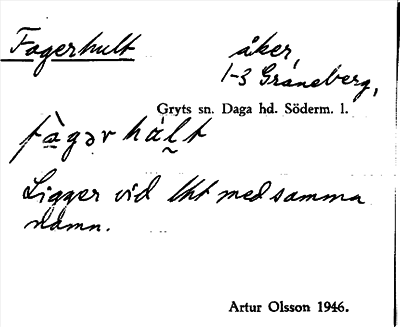 Fagerhult åker,
1-3 Graneberg,
Gryts sn. Daga hd. Söderm. l.
fàgər hàl̰t
Ligger vid lht med samma
namn.
Artur Olsson 1946.